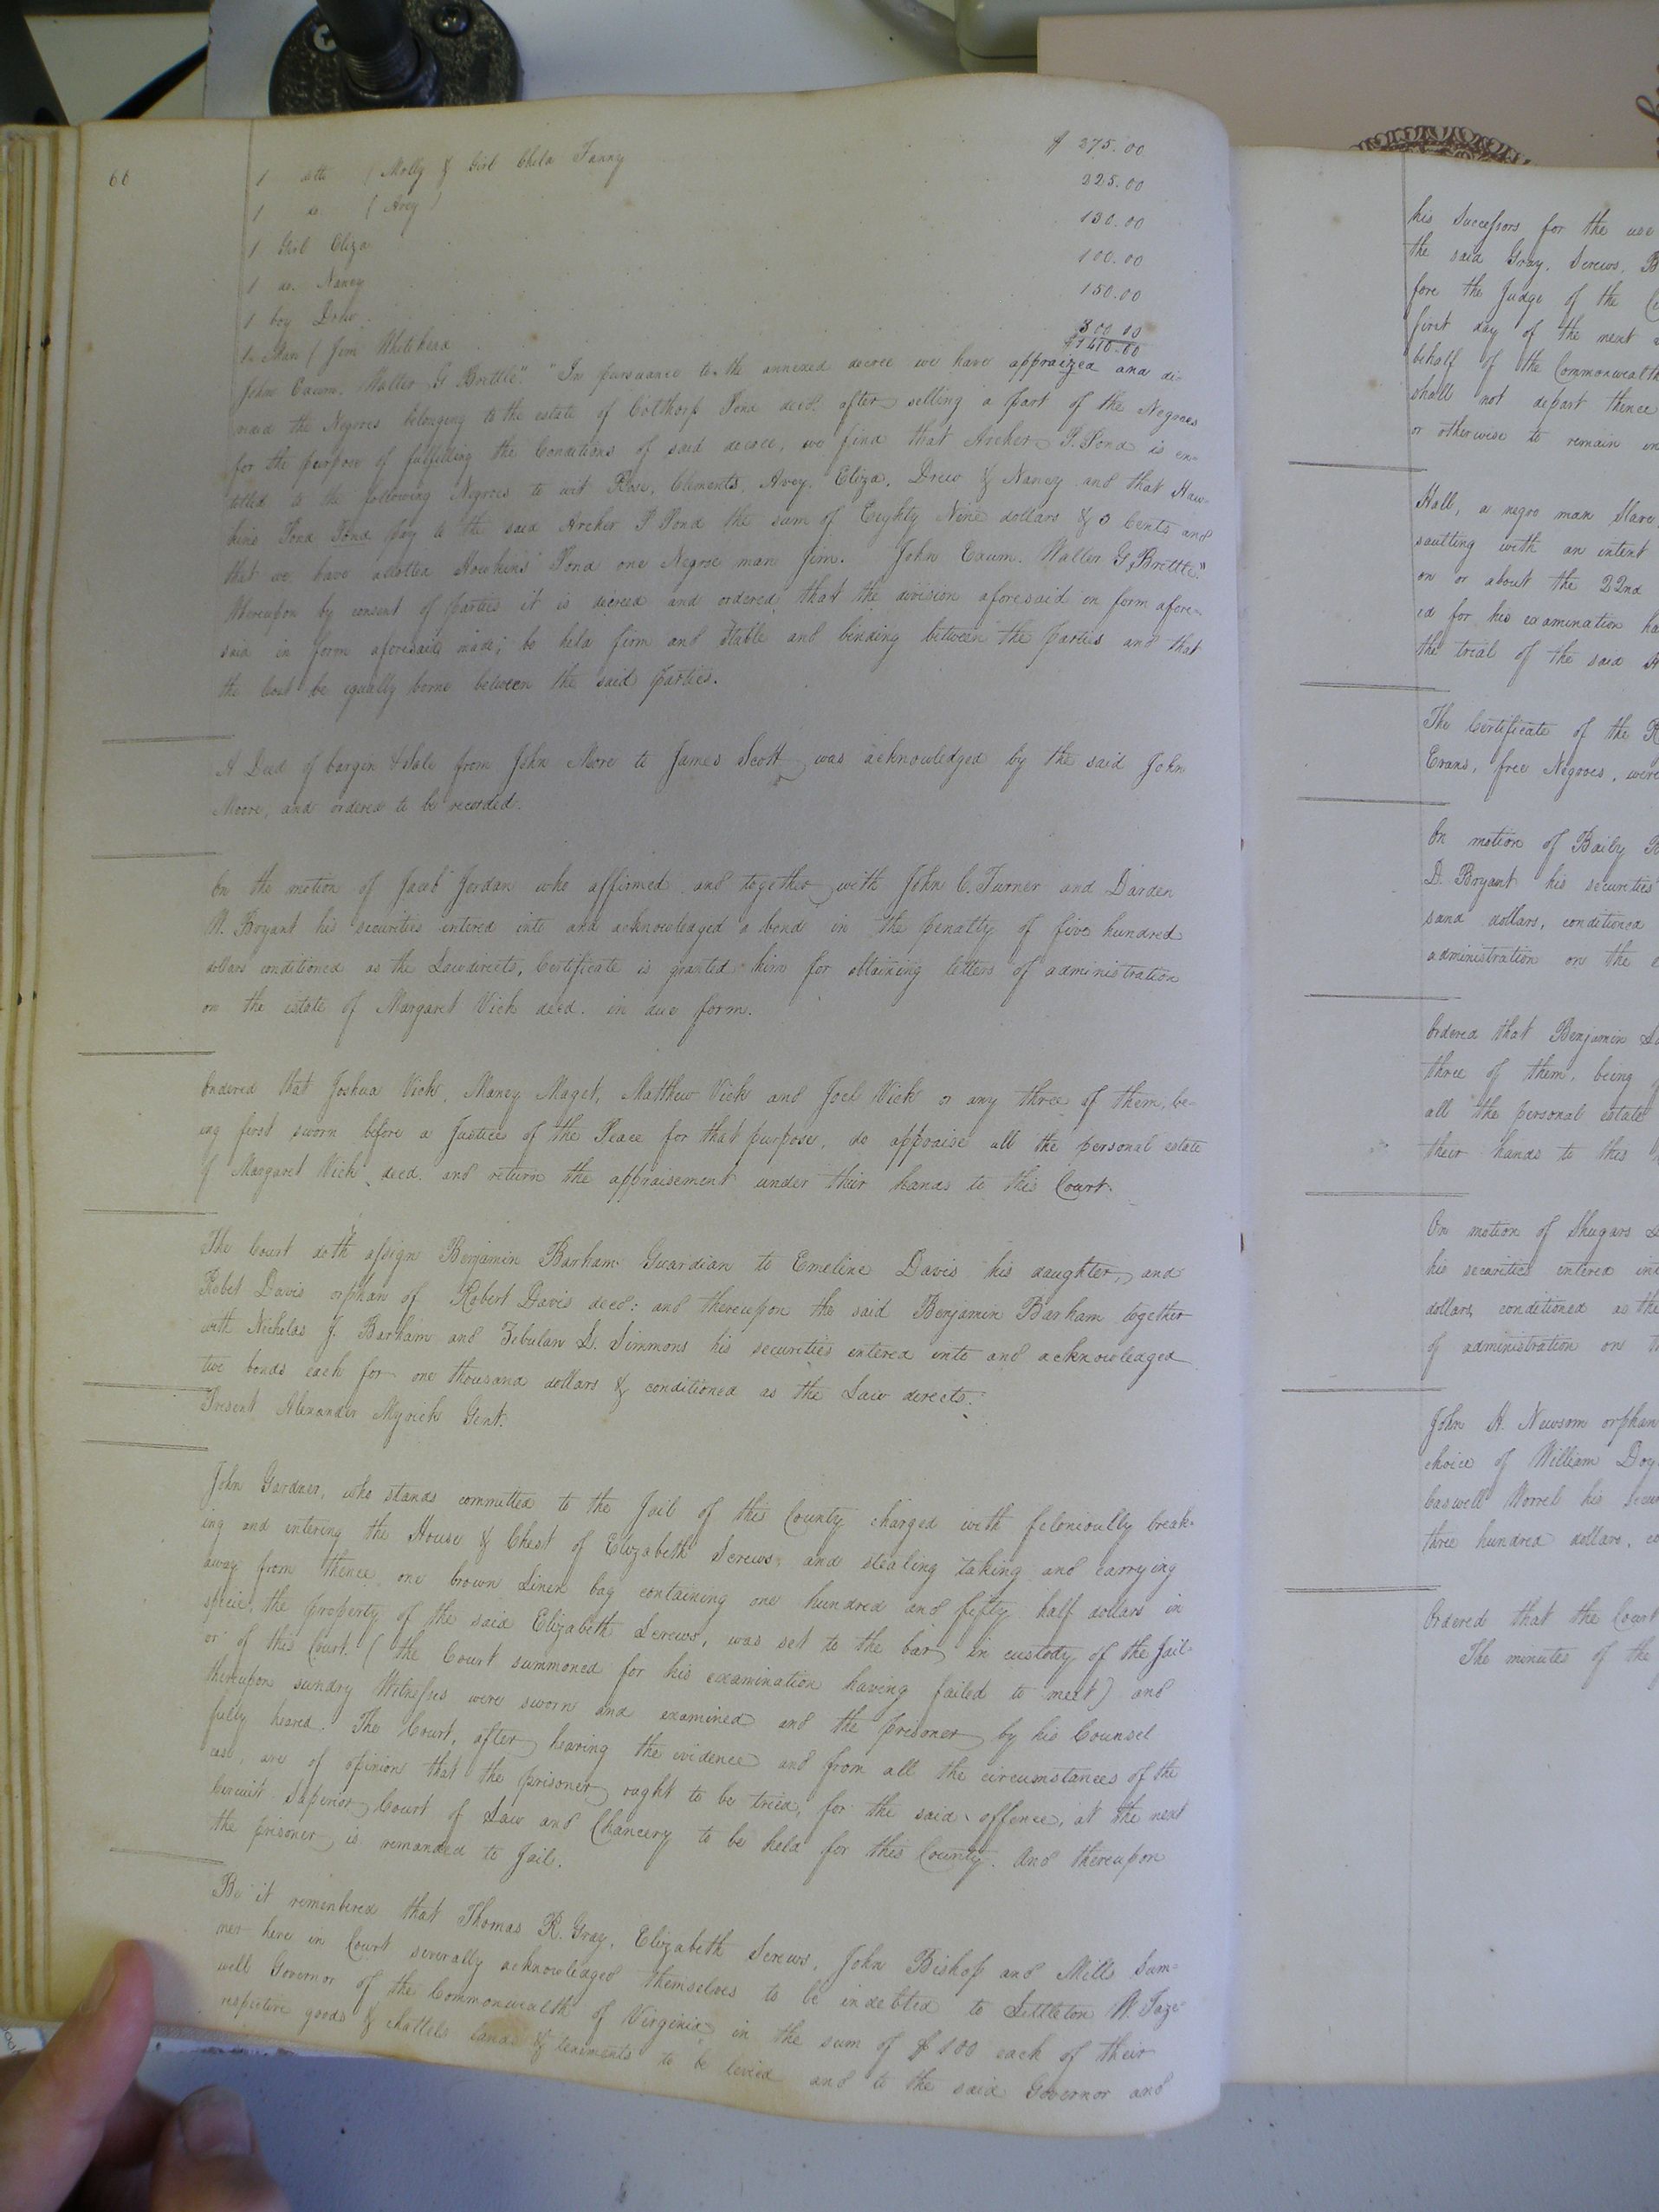 66
1 ditto (Molly & Girl Child Fanny $ 275.00
1 do. (Avey) 225.00
1 Girl Eliza 130.00
1 do. Nancy 100.00
1 boy Drew 150.00
1 Man (Jim Whitehead 300.00
$1410.00
John Eaum. Walter G Brittle." "In pursuance to the annexed decree we have appraized and di-
vided the Negroes belonging to the estate of Colthorp Pond decd. after selling a part of the Negroes
for the purpose of fulfilling the Conditions of said decree, we find that Archer P. Pond is en-
titled to the following Negroes to wit Rose, Clements, Avey, Eliza, Drew & Nancy and that Haw-
kins Pond Pond pay to the said Archer P. Pond the sum of Eeighty Nine dollars & 0 Cents and
that we have allotted Hawkins Pond one Negroe man Jim. John Eaum. Walter G. Brittle."
Whereupon by consent of parties it is decreed and ordered that the division aforesaid in form afore-
said in form aforesaid made; be held firm and stable and binding between the parties and that
the Cost be equally borne between the said parties.
A Deed of bargin & Sale from John More to James Scott was acknowledged by the said John
Moore, and ordered to be recorded.
On the motion of Jacob Jordan who affirmed and together with John C. Turner and Darden
W. Bryant his securities entered into and acknowledged a bond in the penalty of five hundred
dollars conditioned as the Law directs, Certificate is granted him for obtaining letters of administration
on the estate of Margaret Vick decd. in due form.
Ordered that Joshua Vick, Maney Maget, Matthew Vick and Joel Vick or any three of them, be-
ing first sworn before a Justice of the Peace for that purpose, do appraise all the personal estate
of Margaret Vick decd. and return the appraisement under their hands to this Court.
The Court doth assign Benjamin Barham Guardian to Emeline Davis his daughter, and
Robet Davis orphan of Robert Davis decd: and thereupon the said Benjamin Barham together
with Nicholas J. Barham and Zebulan S. Simmons his securities entered into and acknowledged
two bonds each for one thousand dollars & conditioned as the Law derects.
Present Alexander Myrick Gent.
John Gardner, who stands committed to the Jail of this County charged with felonioully break-
ing and entering the House & Chest of Elizabeth Screws, and stealing taking and carrying
away from thence one brown Linen bag containing one hundred and fifty half dollars in
specie, the property of the said Elizabeth Screws, was set to the bar in custody of the Jail-
or of this Court. (the Court summoned for his examination having failed to meet) and
thereupon sundry Witnesses were sworn and examined and the prisoner by his Counsel
fully heard. The Court, after hearing the evidence and from all the circumstances of the
case, are of opinion that the prisoner ought to be tried, for the said offence, at the next
Circuit Superior Court of Law and Chancery to be held for this County. And thereupon
the prisoner is remanded to Jail.
Be it remembered that Thomas R. Gray, Elizabeth Screws, John Bishop and Mills Sum-
ner here in Court severally acknowledged themselves to be indebted to Littleton W. Taze-
well Governor of the Commonwealth of Virginia in the sum of $100 each of their
respective goods & chattels lands & tenements to be levied and to the said Governor and
his Successors for the use
the said Gray, Screws, B
fore the Judge of the
first day of the next
behalf of the Commonwealth
shall not depart thence
or otherwise to remain in
Hall, a negro man Slave,
saulting with an intent
on or about the 22nd
ed for his examination ha
the trial of the said
The Certificate of the R
Evans, free Negroes, were
On motion of Baily
D. Bryant his securities
sand dollars, conditioned
administration on the
Ordered that Benjamin
three of them, being
all the personal estate
their hands to this
On motion of Shugars
his securities entered int
dollars, conditioned as the
of administration on
John H. Newsom orphan
choice of William Doy
Caswell Worrel his secur
three hundred dollars, co
Ordered that the Court
The minutes of the